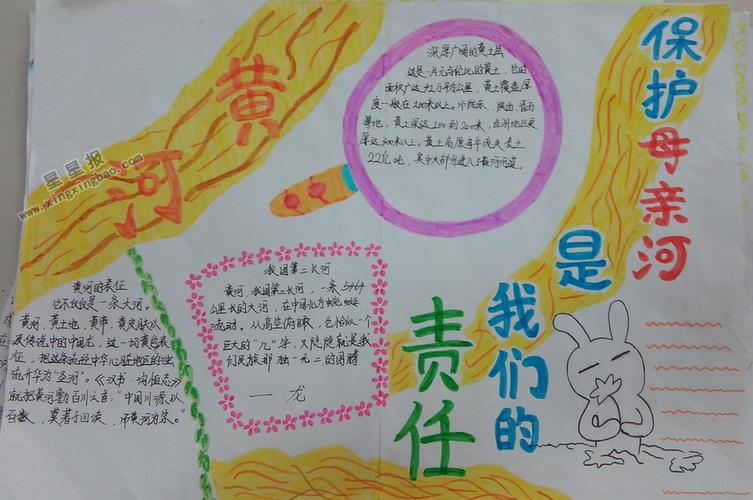 黄河
星星报
www.xingxingbao.com
深厚广阔的黄土层
这是一片无与伦比的黄土,它的
面积广达 万平方公里,黄土覆盖厚
度一般在100米以上。 陕西、
等地,黄土深达100到200米,
厚达300米以上。黄土高原每年流失表土
22亿吨,其中大部分进入了黄河河道。
保护母亲河
是
我们的
责任
黄河的表征
它不仅仅是一条大河。
黄河,黄土地,黄帝,黄皮肤以
及传说中的中国龙,这一切黄色表
征,把这条流经中华心脏地区的浊
流升华为“圣河”。《汉书·沟恤志》
就把黄河尊为百川之首:“中国川源以
百数,莫著于四渎,而黄河为宗。”
我国第二长河
黄河,我国第二长河,一条5464
公里长的大河,在中国北方蜿蜒
流动。从高空俯瞰,它恰似一个
巨大的“几”字,又隐隐就是我
们民族那独一无二的图腾
——龙